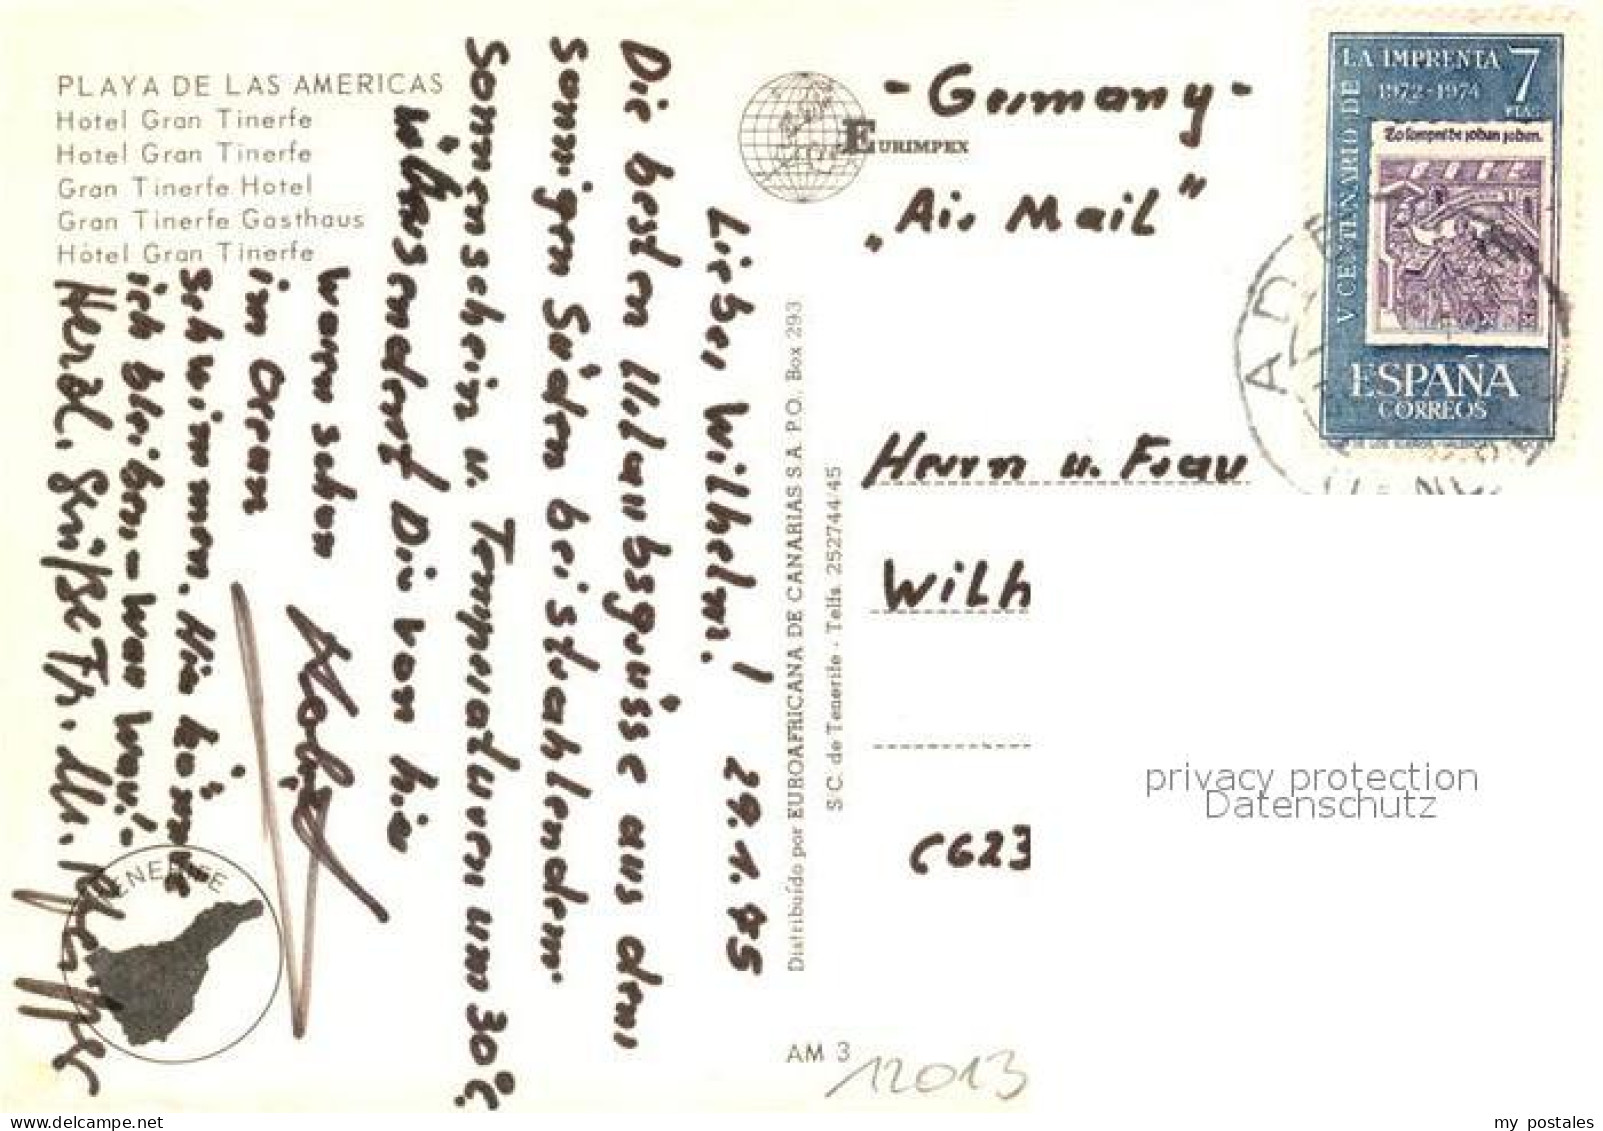 PLAYA DE LAS AMERICAS
Hotel Gran Tinerfe
Hotel Gran Tinerfe
Gran Tinerfe Hotel
Gran Tinerfe Gasthaus
Hôtel Gran Tinerfe
Lieber Wilhelm! 29.1.75
Die besten Urlaubsgrüsse aus dem
sonnigen Süden bei strahlendem
Sonnenschein u. Temperaturen um 30°C.
wünscht Dir von hier
warm schon
im Ocean
schwimmen. Hier könnte
ich bleiben – war
Herzl. Grüße
TENERIFE
Distribuído por EUROAFRICANA DE CANARIAS S.A. P.O. Box 293
S/C. de Tenerife - Telfs. 252744/45
AM 3
12013
EURIMPEX
- Germany -
"Air Mail"
Herrn u. Frau
Wilh
C623
LA IMPRENTA
1972-1974
7
PTAS
V CENTENARIO DE
ESPAÑA
CORREOS
privacy protection
Datenschutz
my postales